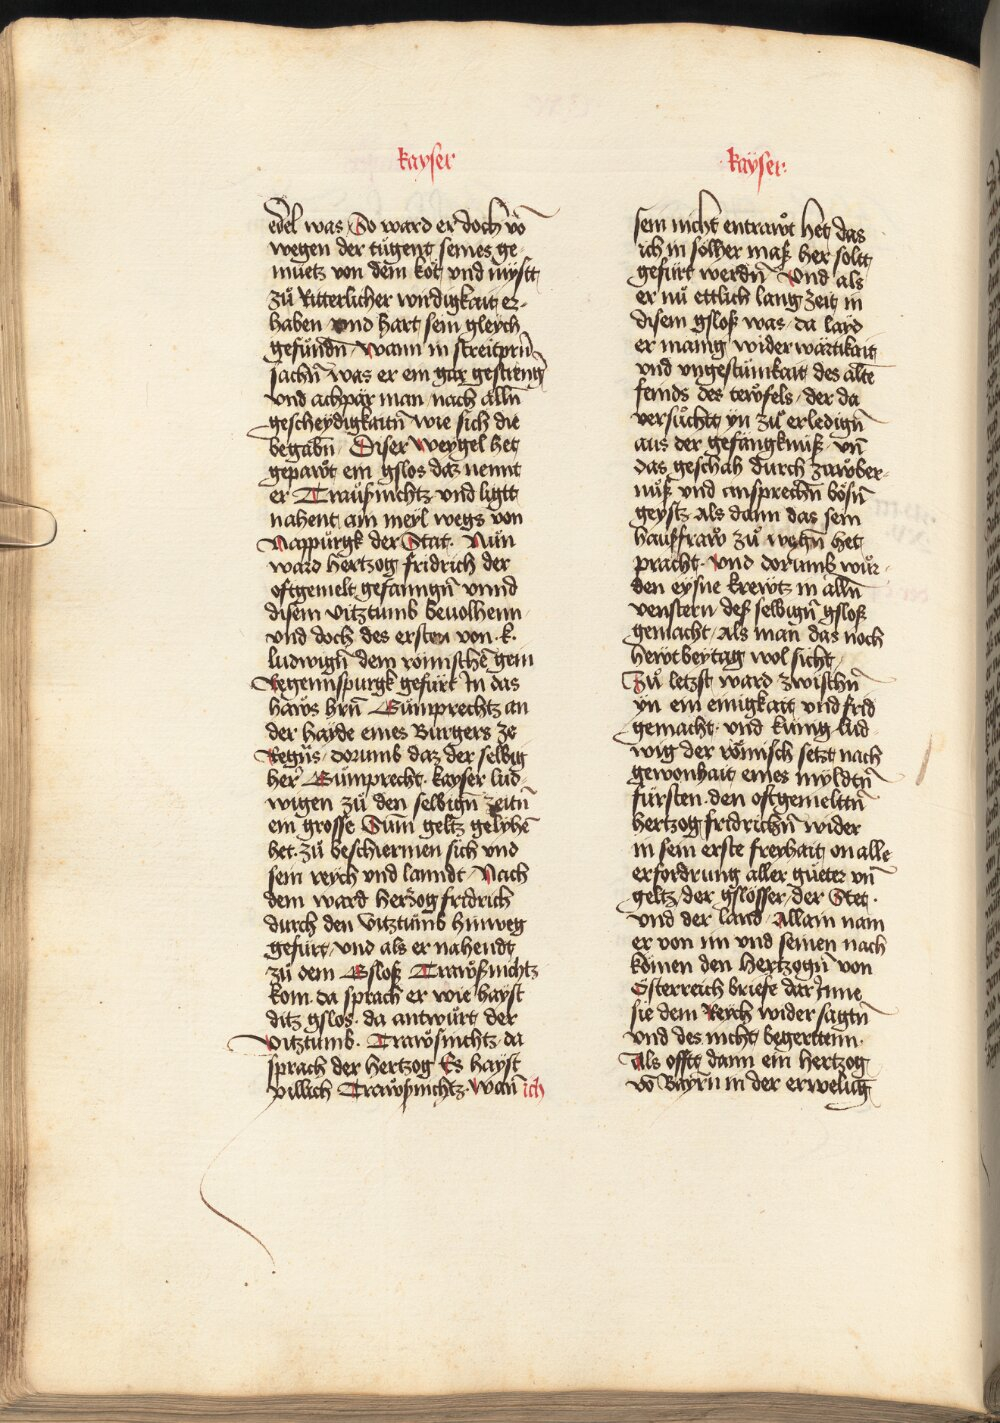 kayser
edel was / So ward er doch võ
wegen der tugent seines ge¬
muetz von dem kot vnd mystt
zů Ritterlicher wirdigkait er¬
haben vnd hart sein gleych
gefunden̄ / wann in streitperñ
sachn̄ was er ein gar gestreng
vnd achpar man / nach alln̄
gescheydigkaitn̄ wie sich die
begabn̄ / Diser weygel het
gepawt ein gslos daz nennt
er Trausnichtz vnd ligtt
nahent ain meyl wegs von
Nappurgk der Stat · Nun
ward hertzog fridrich der
oftgemelt gefanngn̄ vnnd
disem vitztumb beuolhenn
vnd doch des ersten von · k ·
ludwign̄ dem romischē gein
Regennspurgk gefürt In das
haws hrn̄ Gumprechtz an
der hayde eines Burgers ze
Regn̄s / dorumb daz der selbig
her Gumprecht · kayser lud¬
wigen zů den selbign̄ zeitn̄
ein grosse Sum̄ geltz gelyhē
het · zů beschiermen sich vnd
sein reych vnd lanndt / Nach
dem ward hertzog fridrich
durch den vitztumb hinweg
gefürt / vnd als er nahendt
zů dem Gsloß Trawsnichtz
kom · da sprach er wie hayst
ditz gslos · da antwurt der
vitztumb · Trawsnichtz · da
sprach der hertzog Es hayst
pillich Trawsnichtz · wan̄ ich
kayser ·
sein nicht entrawt het das
ich in sölher maß her soltt
gefürt werdn̄ Vnd als
er nů ettlich lang zeit in
disem gsloß was / da layd
er manig widerwärtikait
vnd vngestumkait des altē
feinds des tewfels / der da
versuchtt yn zů erledign̄
aus der gefängknuß / vn̄
das geschah durch zawber¬
nuß vnd ansprechn̄ bösn̄
geystz / Als dann das sein
hausfraw zů wegn̄ het
pracht · Vnd dorumb wur¬
den eysne krewtz in alln̄
venstern deß selbign̄ gsloß
gemacht / Als man das noch
hewtbeytag wol sicht /
Zů letzst ward zwischn̄
yn ein einigkait vnd frid
gemacht · vnd kunig Lud¬
wig der römisch setzt nach
gewonhait eines myldtn̄
fürsten · den oftgemelttn̄
hertzog fridrichn̄ wider
in sein erste freyhait on alle
erfordrung aller gueter vn̄
geltz / der gslösser / der Stet ·
vnd der land / Allain nam
er von im vnd seinen nach
komen den hertzogn̄ von
Österreich briefe darInne
sie dem Reych wider sagtn̄
vnd des nicht begerttenn ·
Als offtt dann ein hertzog
vō Bayrn in der erwelūg